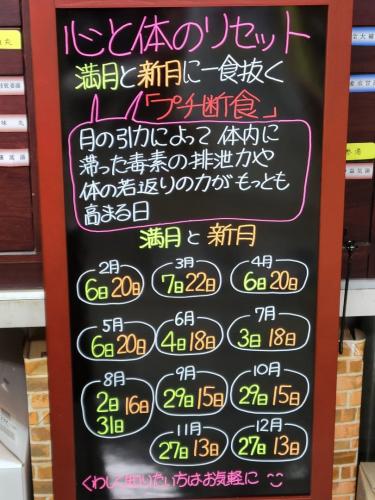 心と体のリセット
満月と新月に一食抜く
「プチ断食」
月の引力によって 体内に
滞った毒素の排泄力や
体の若返りの力がもっとも
高まる日
満月と新月
2月 3月 4月
6日 20日 7日 22日 6日 20日
5月 6月 7月
6日 20日 4日 18日 3日 18日
8月 9月 10月
2日 16日 29日 15日 29日 15日
31日
11月 12月
27日 13日 27日 13日
くわしく聞いたい方はお気軽に